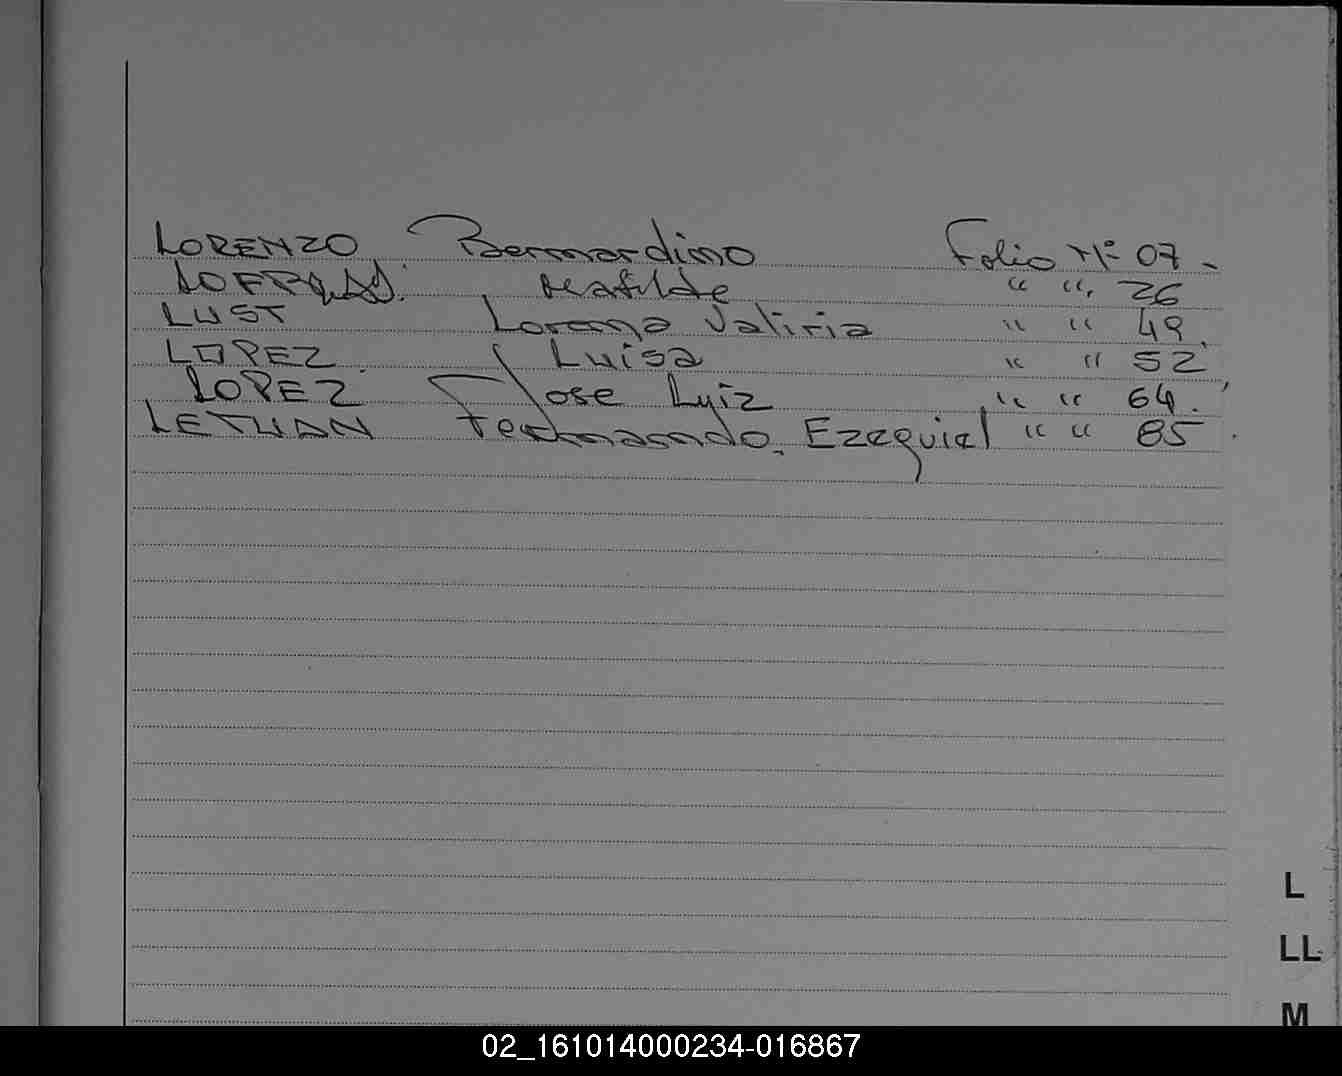 LORENZO Bernardino Folio Nº 07.
Matilde " " 26
LUST Lorena Valiria " " 49.
LOPEZ. Luisa " " 52
LOPEZ Jose Luiz " " 64.
LETHAN Fernando. Ezequiel " " 85.
L
LL
M
02_161014000234-016867